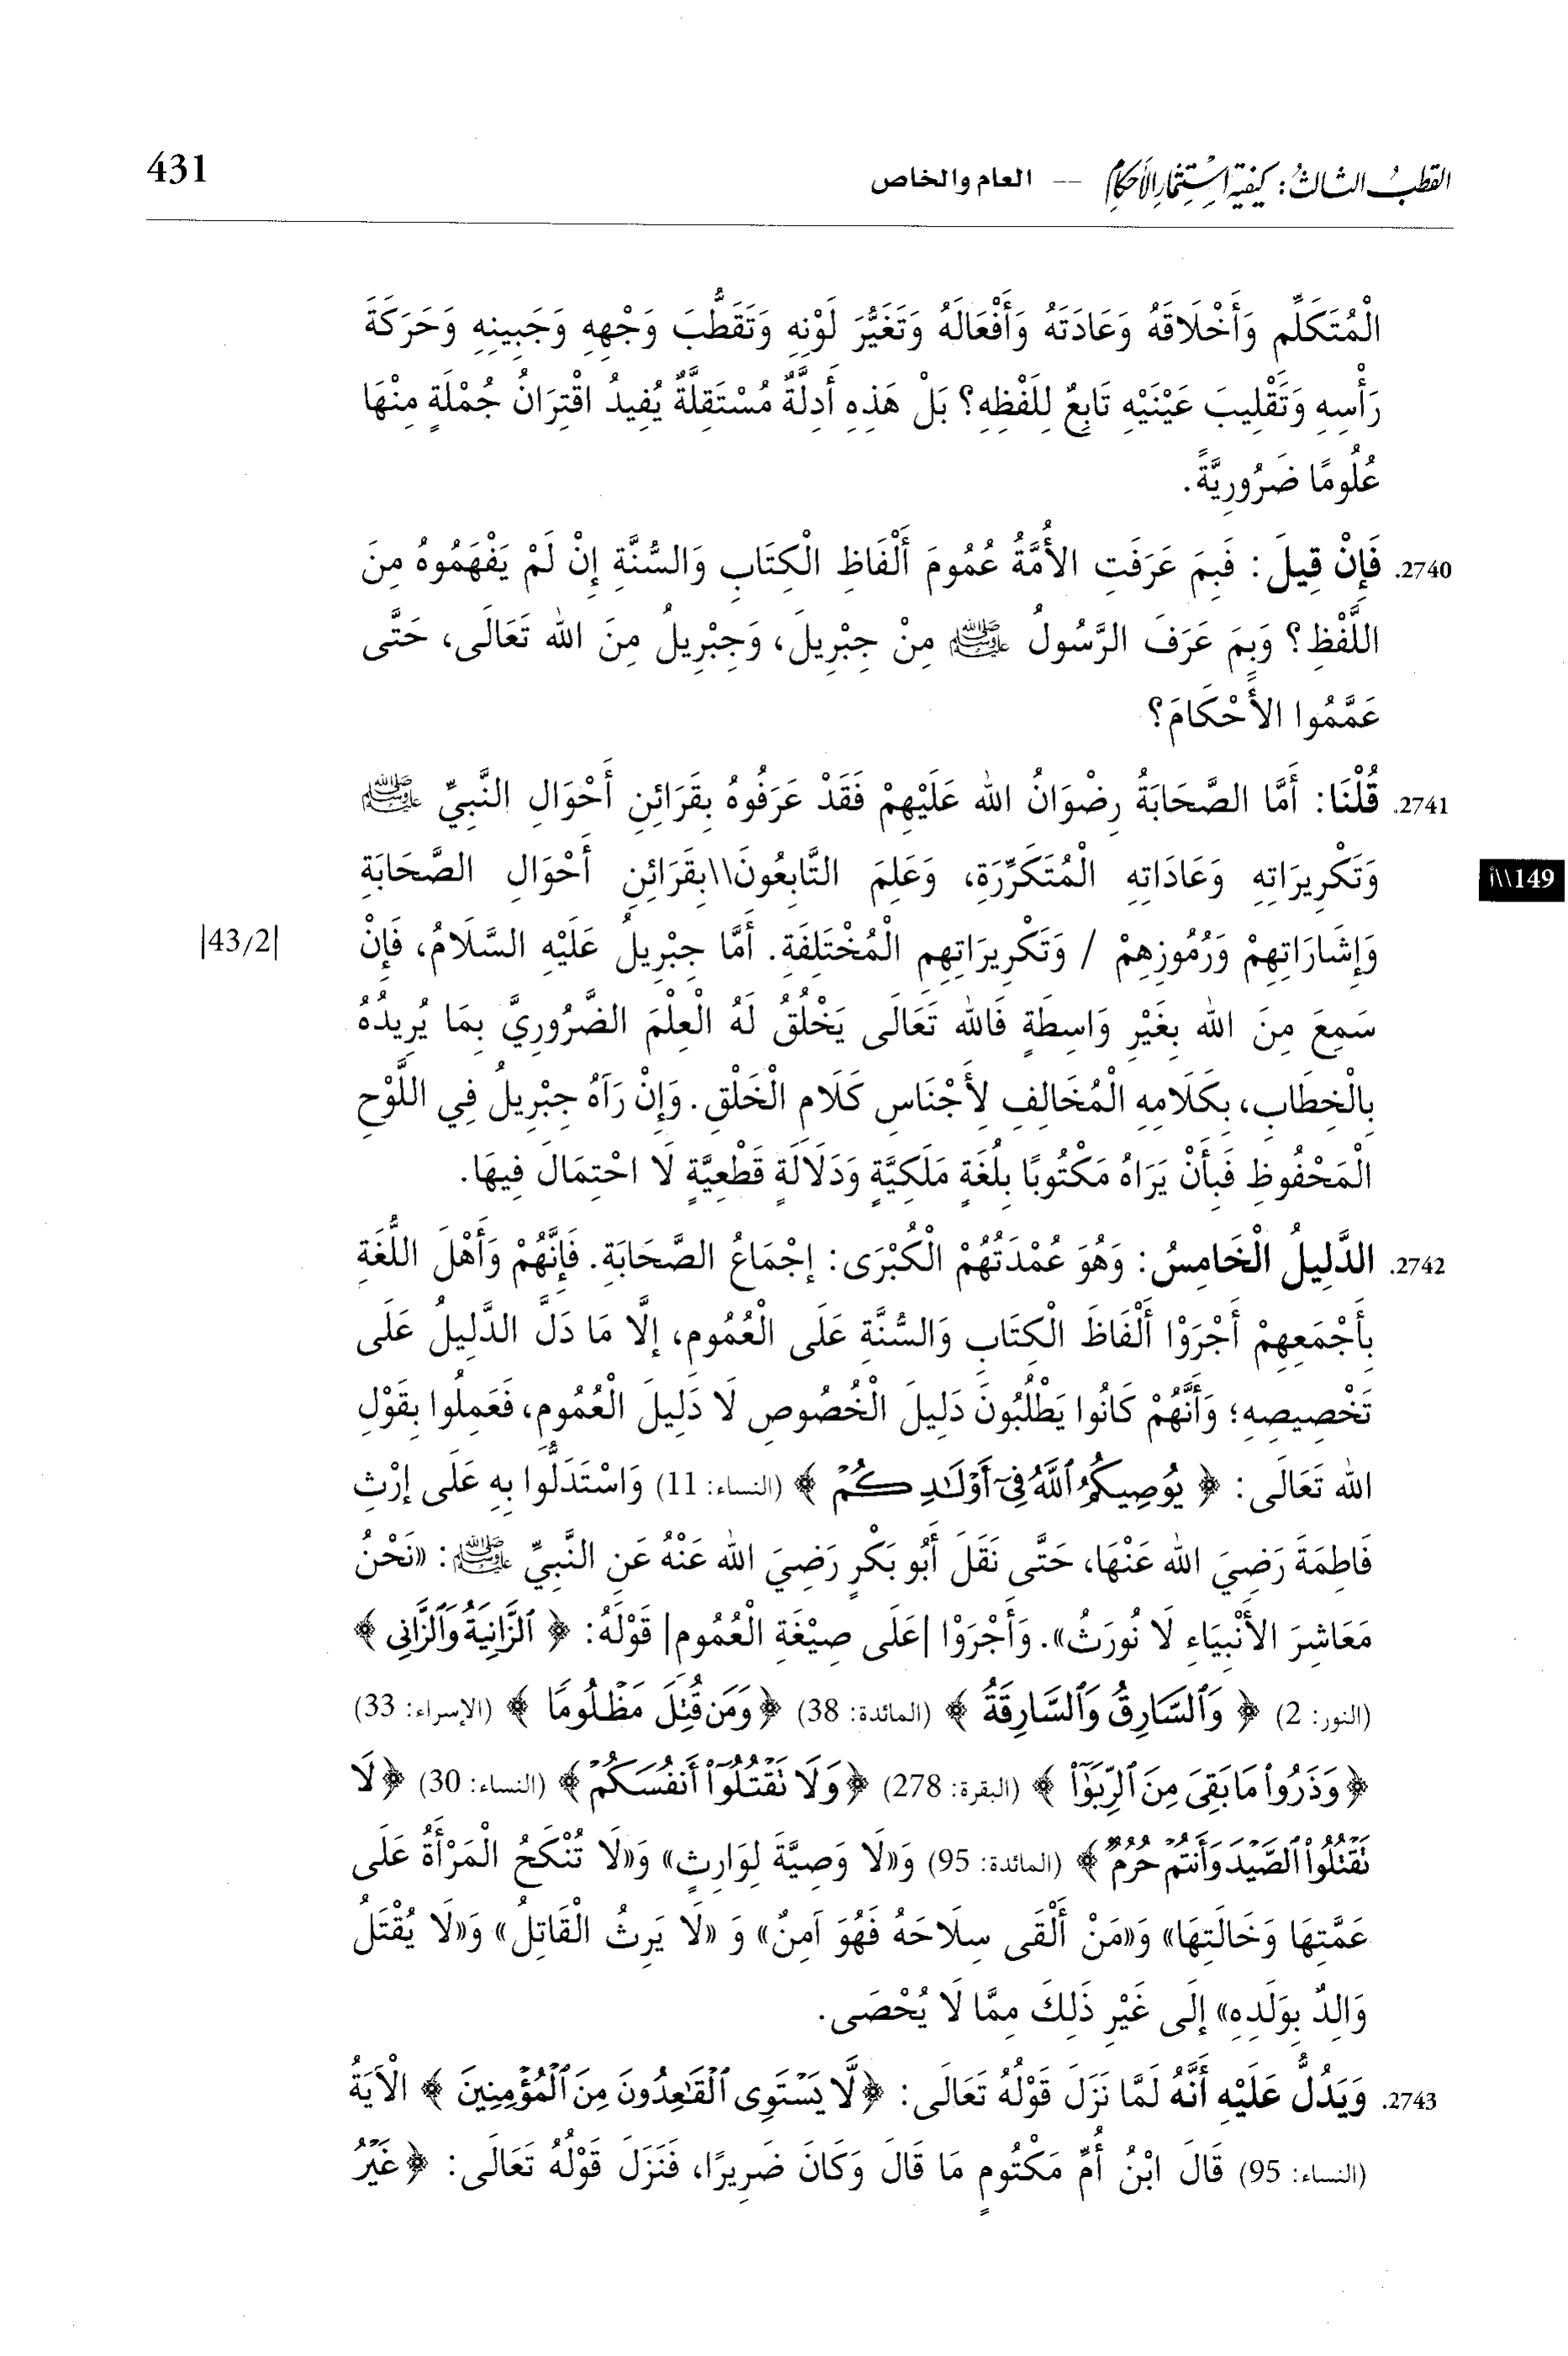 القطب الثالث: كيفية استثمار الأحكام -- العام والخاص 431
الْمُتَكَلِّمِ وَأَخْلَاقَهُ وَعَادَتَهُ وَأَفْعَالَهُ وَتَغَيُّرَ لَوْنِهِ وَتَقَطُّبَ وَجْهِهِ وَجَبِينِهِ وَحَرَكَةَ
رَأْسِهِ وَتَقْلِيبَ عَيْنَيْهِ تَابِعٌ لِلَفْظِهِ؟ بَلْ هَذِهِ أَدِلَّةٌ مُسْتَقِلَّةٌ يُفِيدُ اقْتِرَانُ جُمْلَةٍ مِنْهَا
عُلُومًا ضَرُورِيَّةً.
2740. فَإِنْ قِيلَ: فَبِمَ عَرَفَتِ الأُمَّةُ عُمُومَ أَلْفَاظِ الْكِتَابِ وَالسُّنَّةِ إِنْ لَمْ يَفْهَمُوهُ مِنَ
اللَّفْظِ؟ وَبِمَ عَرَفَ الرَّسُولُ ﷺ مِنْ جِبْرِيلَ، وَجِبْرِيلُ مِنَ الله تَعَالَى، حَتَّى
عَمَّمُوا الأَحْكَامَ؟
2741. قُلْنَا: أَمَّا الصَّحَابَةُ رِضْوَانُ الله عَلَيْهِمْ فَقَدْ عَرَفُوهُ بِقَرَائِنِ أَحْوَالِ النَّبِيِّ ﷺ
وَتَكْرِيرَاتِهِ وَعَادَاتِهِ الْمُتَكَرِّرَةِ، وَعَلِمَ التَّابِعُونَ\\بِقَرَائِنِ أَحْوَالِ الصَّحَابَةِ
149\\أ
وَإِشَارَاتِهِمْ وَرُمُوزِهِمْ / وَتَكْرِيرَاتِهِم الْمُخْتَلِفَةِ. أَمَّا جِبْرِيلُ عَلَيْهِ السَّلَامُ، فَإِنْ
|43/2|
سَمِعَ مِنَ الله بِغَيْرِ وَاسِطَةٍ فَالله تَعَالَى يَخْلُقُ لَهُ الْعِلْمَ الضَّرُورِيَّ بِمَا يُرِيدُهُ
بِالْخِطَابِ، بِكَلَامِهِ الْمُخَالِفِ لِأَجْنَاسِ كَلَامِ الْخَلْقِ. وَإِنْ رَآهُ جِبْرِيلُ فِي اللَّوْحِ
الْمَحْفُوظِ فَبِأَنْ يَرَاهُ مَكْتُوبًا بِلُغَةٍ مَلَكِيَّةٍ وَدَلَالَةٍ قَطْعِيَّةٍ لَا احْتِمَالَ فِيهَا.
2742. الدَّلِيلُ الْخَامِسُ: وَهُوَ عُمْدَتُهُمْ الْكُبْرَى: إِجْمَاعُ الصَّحَابَةِ. فَإِنَّهُمْ وَأَهْلَ اللُّغَةِ
بِأَجْمَعِهِمْ أَجْرَوْا أَلْفَاظَ الْكِتَابِ وَالسُّنَّةِ عَلَى الْعُمُومِ، إِلَّا مَا دَلَّ الدَّلِيلُ عَلَى
تَخْصِيصِهِ؛ وَأَنَّهُمْ كَانُوا يَطْلُبُونَ دَلِيلَ الْخُصُوصِ لَا دَلِيلَ الْعُمُومِ، فَعَمِلُوا بِقَوْلِ
الله تَعَالَى: ﴿ يُوصِيكُمُ ٱللَّهُ فِىٓ أَوْلَٰدِكُمْ ﴾ (النساء: 11) وَاسْتَدَلُّوا بِهِ عَلَى إِرْثِ
فَاطِمَةَ رَضِيَ الله عَنْهَا، حَتَّى نَقَلَ أَبُو بَكْرٍ رَضِيَ الله عَنْهُ عَنِ النَّبِيِّ ﷺ: «نَحْنُ
مَعَاشِرَ الأَنْبِيَاءِ لَا نُورَثُ». وَأَجْرَوْا |عَلَى صِيْغَةِ الْعُمُومِ| قَوْلَهُ: ﴿ ٱلزَّانِيَةُ وَٱلزَّانِى ﴾
(النور: 2) ﴿ وَٱلسَّارِقُ وَٱلسَّارِقَةُ ﴾ (المائدة: 38) ﴿ وَمَن قُتِلَ مَظْلُومًا ﴾ (الإسراء: 33)
﴿ وَذَرُوا۟ مَا بَقِىَ مِنَ ٱلرِّبَوٰٓا۟ ﴾ (البقرة: 278) ﴿ وَلَا تَقْتُلُوٓا۟ أَنفُسَكُمْ ﴾ (النساء: 30) ﴿ لَا
تَقْتُلُوا۟ ٱلصَّيْدَ وَأَنتُمْ حُرُمٌ ﴾ (المائدة: 95) وَ«لَا وَصِيَّةَ لِوَارِثٍ» وَ«لَا تُنْكَحُ الْمَرْأَةُ عَلَى
عَمَّتِهَا وَخَالَتِهَا» وَ«مَنْ أَلْقَى سِلَاحَهُ فَهُوَ آمِنٌ» وَ «لَا يَرِثُ الْقَاتِلُ» وَ«لَا يُقْتَلُ
وَالِدٌ بِوَلَدِهِ» إِلَى غَيْرِ ذَلِكَ مِمَّا لَا يُحْصَى.
2743. وَيَدُلُّ عَلَيْهِ أَنَّهُ لَمَّا نَزَلَ قَوْلُهُ تَعَالَى: ﴿ لَّا يَسْتَوِى ٱلْقَٰعِدُونَ مِنَ ٱلْمُؤْمِنِينَ ﴾ الْآيَةُ
(النساء: 95) قَالَ ابْنُ أُمِّ مَكْتُومٍ مَا قَالَ وَكَانَ ضَرِيرًا، فَنَزَلَ قَوْلُهُ تَعَالَى: ﴿ غَيْرُ